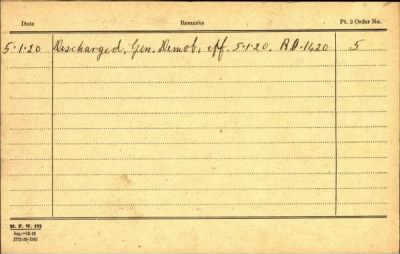 Date Remarks Pt. 2 Order No.
5.1.20 Discharged, Gen. Demob, eff. 5.1.20. RO-1420 5
M. F. W. 192